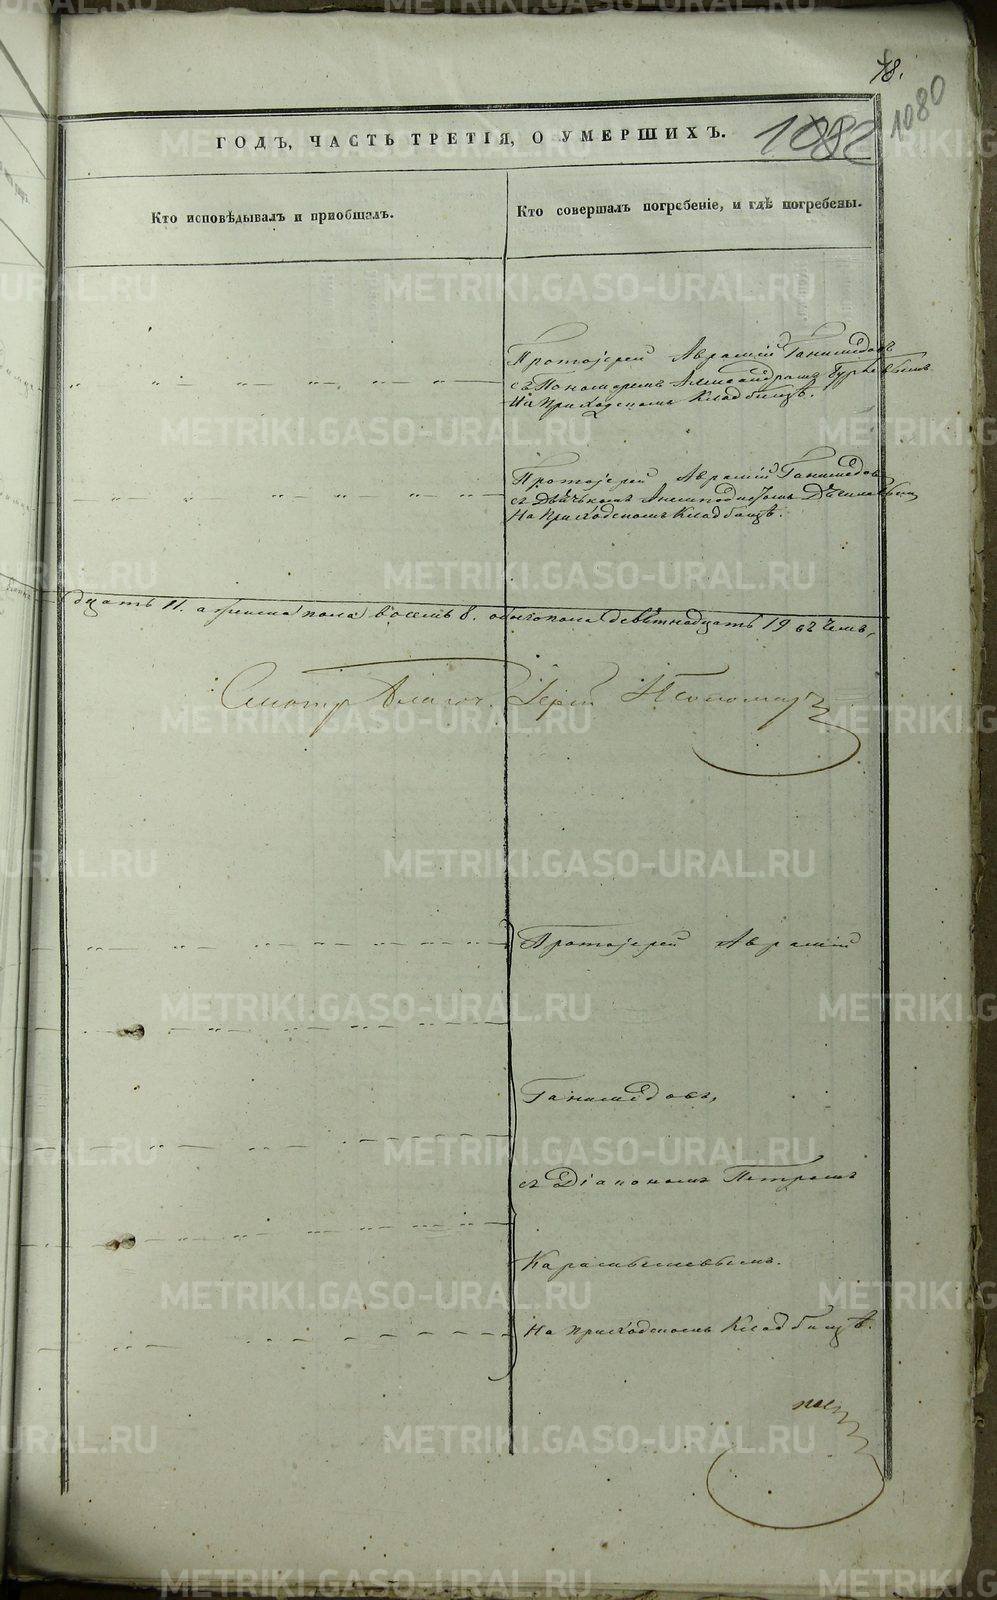 18.
1080
1082
ГОДЪ, ЧАСТЬ ТРЕТІЯ, О УМЕРШИХЪ.
Кто исповѣдывалъ и пріобщалъ.
Кто совершалъ погребеніе, и гдѣ погребены.
Протоіерей Аврамій Ганимедовъ
съ Пономаремъ Александромъ
На приходскомъ Кладбищѣ.
Протоіерей Аврамій Ганимедовъ
съ Дьячкомъ
На Приходскомъ Кладбищѣ.
дцать 11. а женска пола восемь 8. обоего пола девѣтнадцать 19 съ чемъ,
Іерей
Протоіерей Аврамій
Ганимедовъ,
съ Діакономъ Петромъ
Карамышевымъ.
На приходскомъ Кладбищѣ.
METRIKI.GASO-URAL.RU